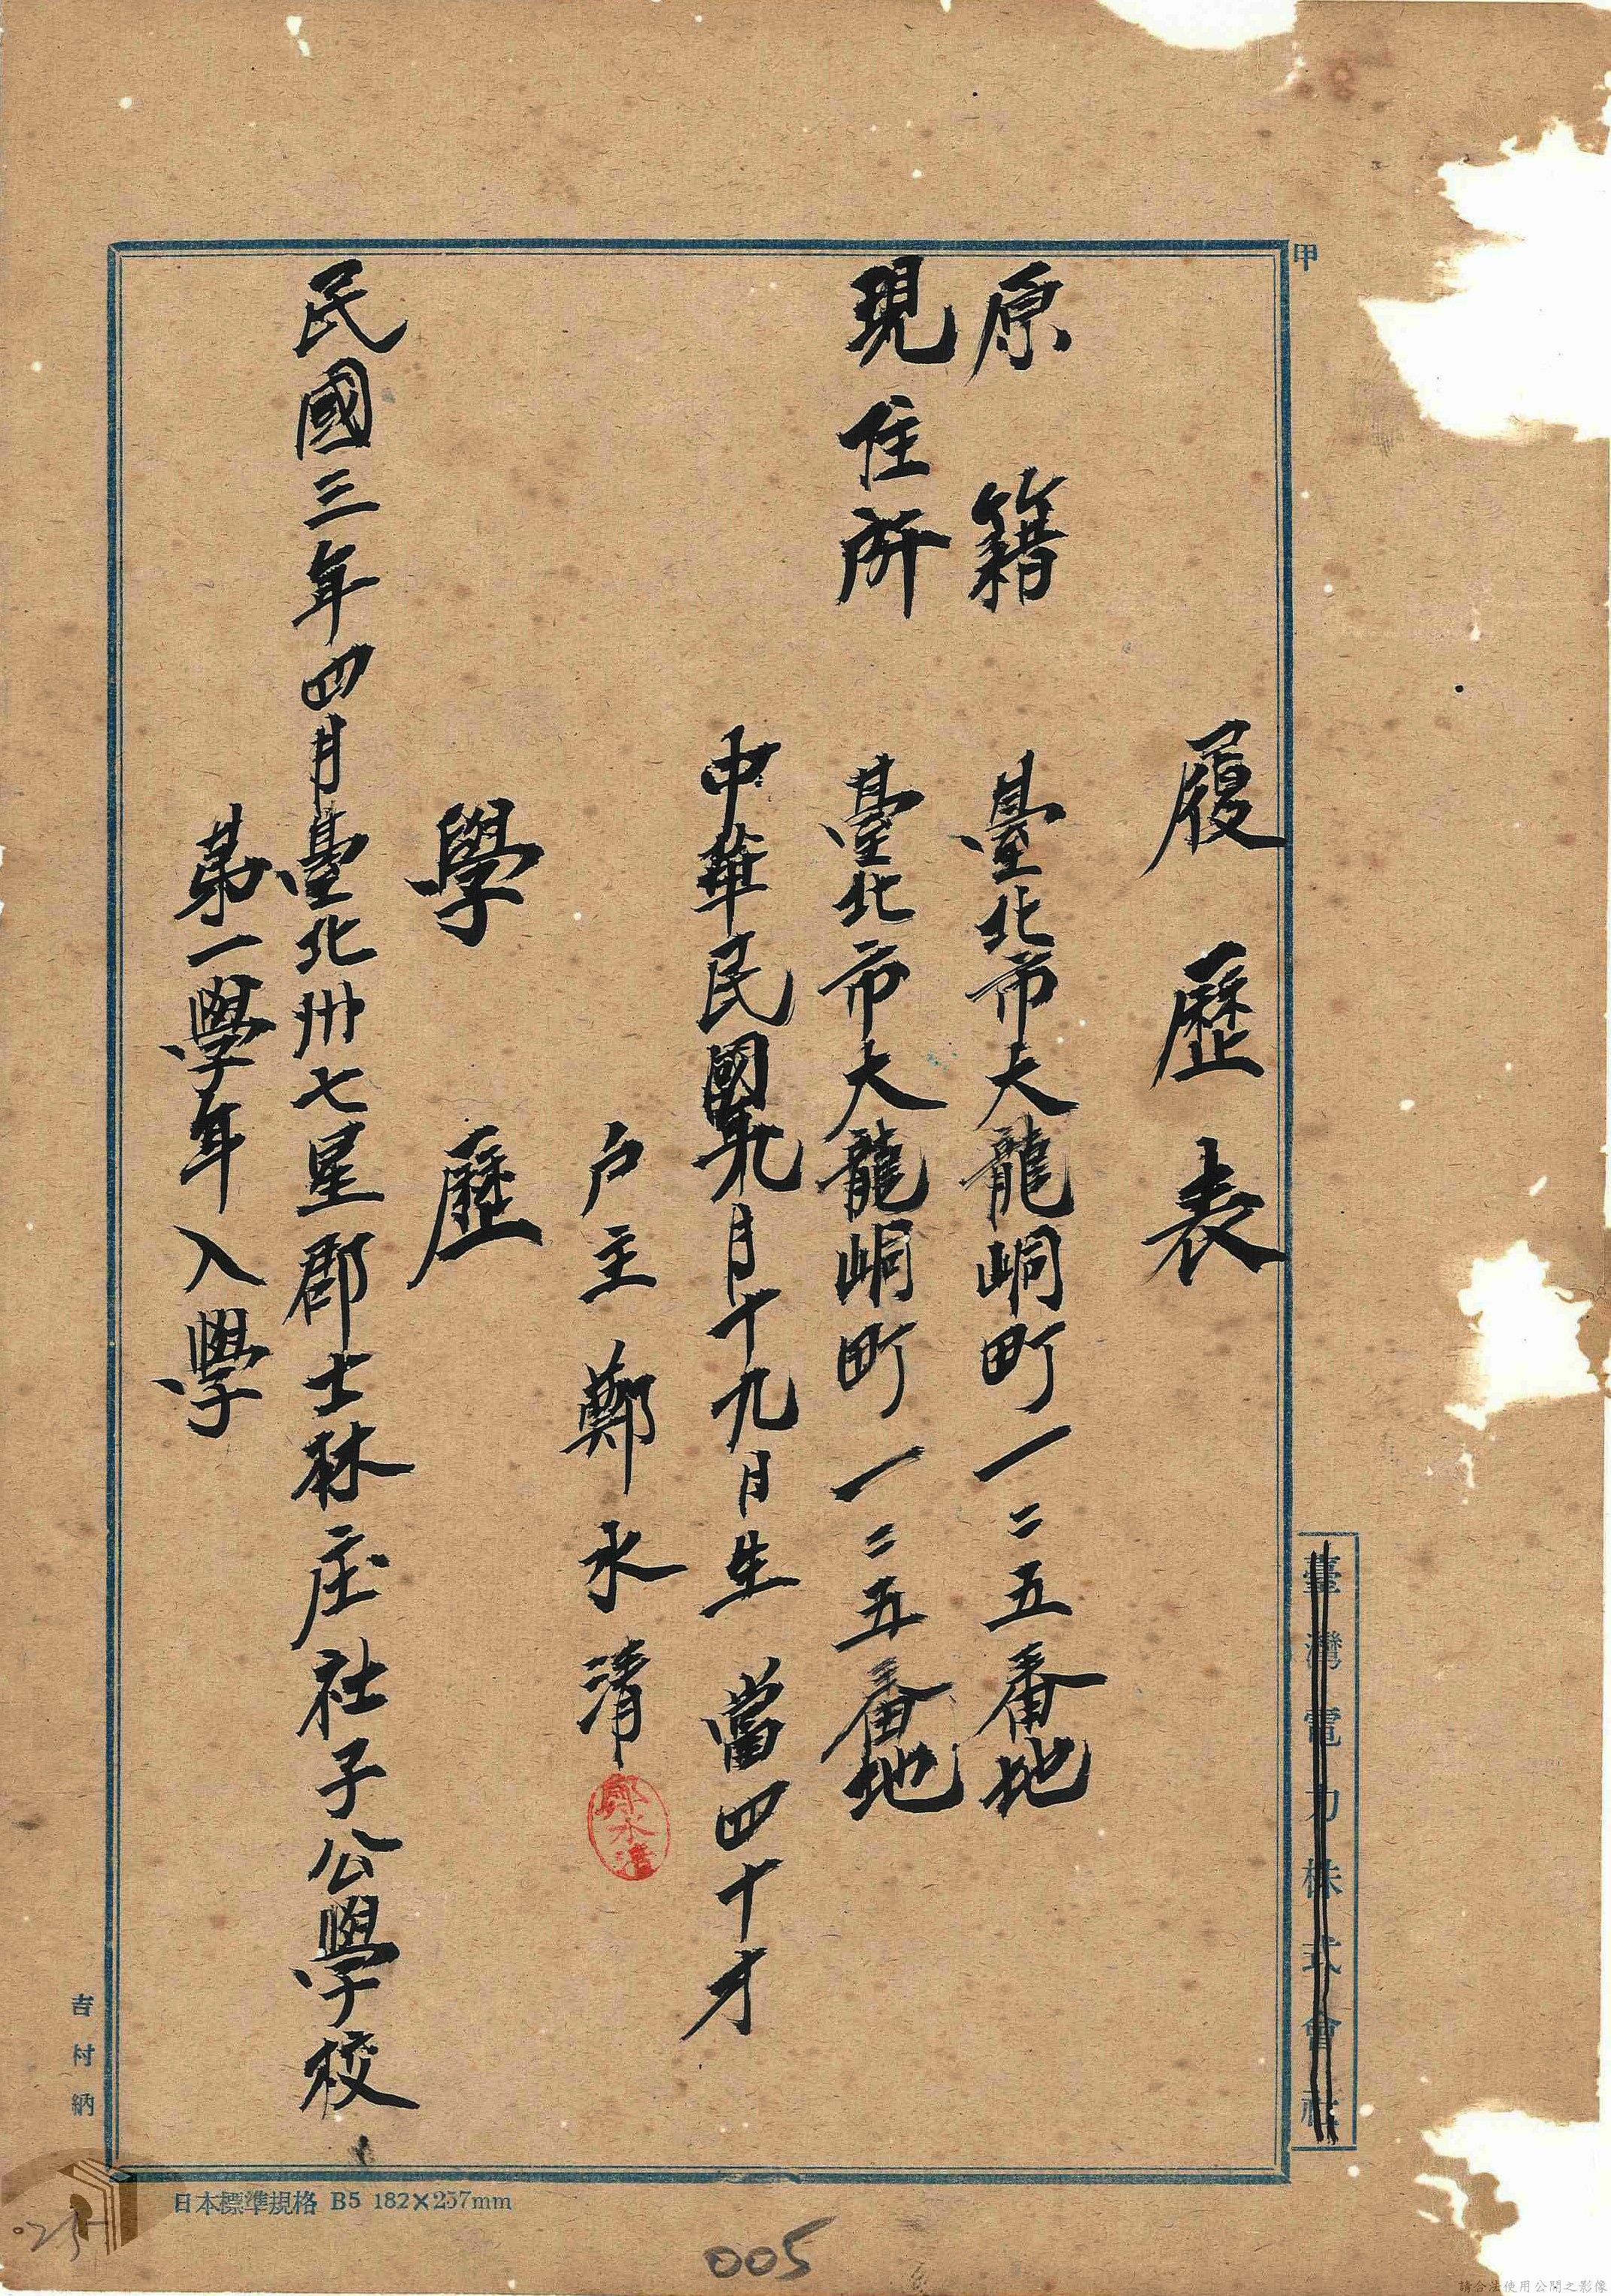 甲
臺灣電力株式會社
履歷表
原籍 臺北市大龍峒町一二五番地
現住所 臺北市大龍峒町一二五番地
中華民國年九月十九日生 當四十才
戶主 鄭水清
鄭水清
學歷
民國三年四月臺北州七星郡士林庄社子公學校
第一學年入學
吉村納
日本標準規格 B5 182×257mm
005
請合法使用公開之影像